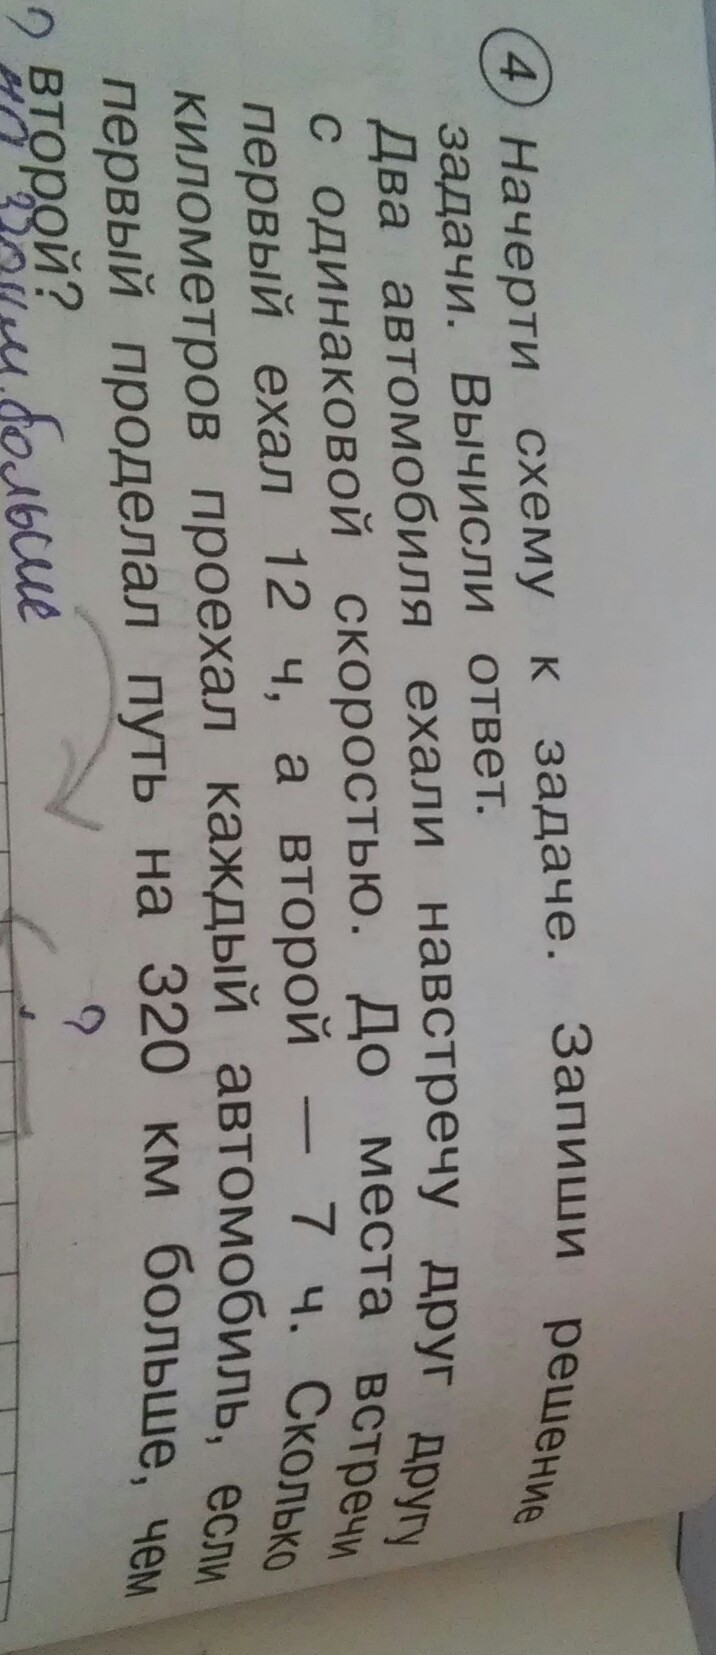 4 Начерти схему к задаче. Запиши решение
задачи. Вычисли ответ.
Два автомобиля ехали навстречу друг другу
с одинаковой скоростью. До места встречи
первый ехал 12 ч, а второй — 7 ч. Сколько
километров проехал каждый автомобиль, если
первый проделал путь на 320 км больше, чем
второй?
?
? на 320км. больше